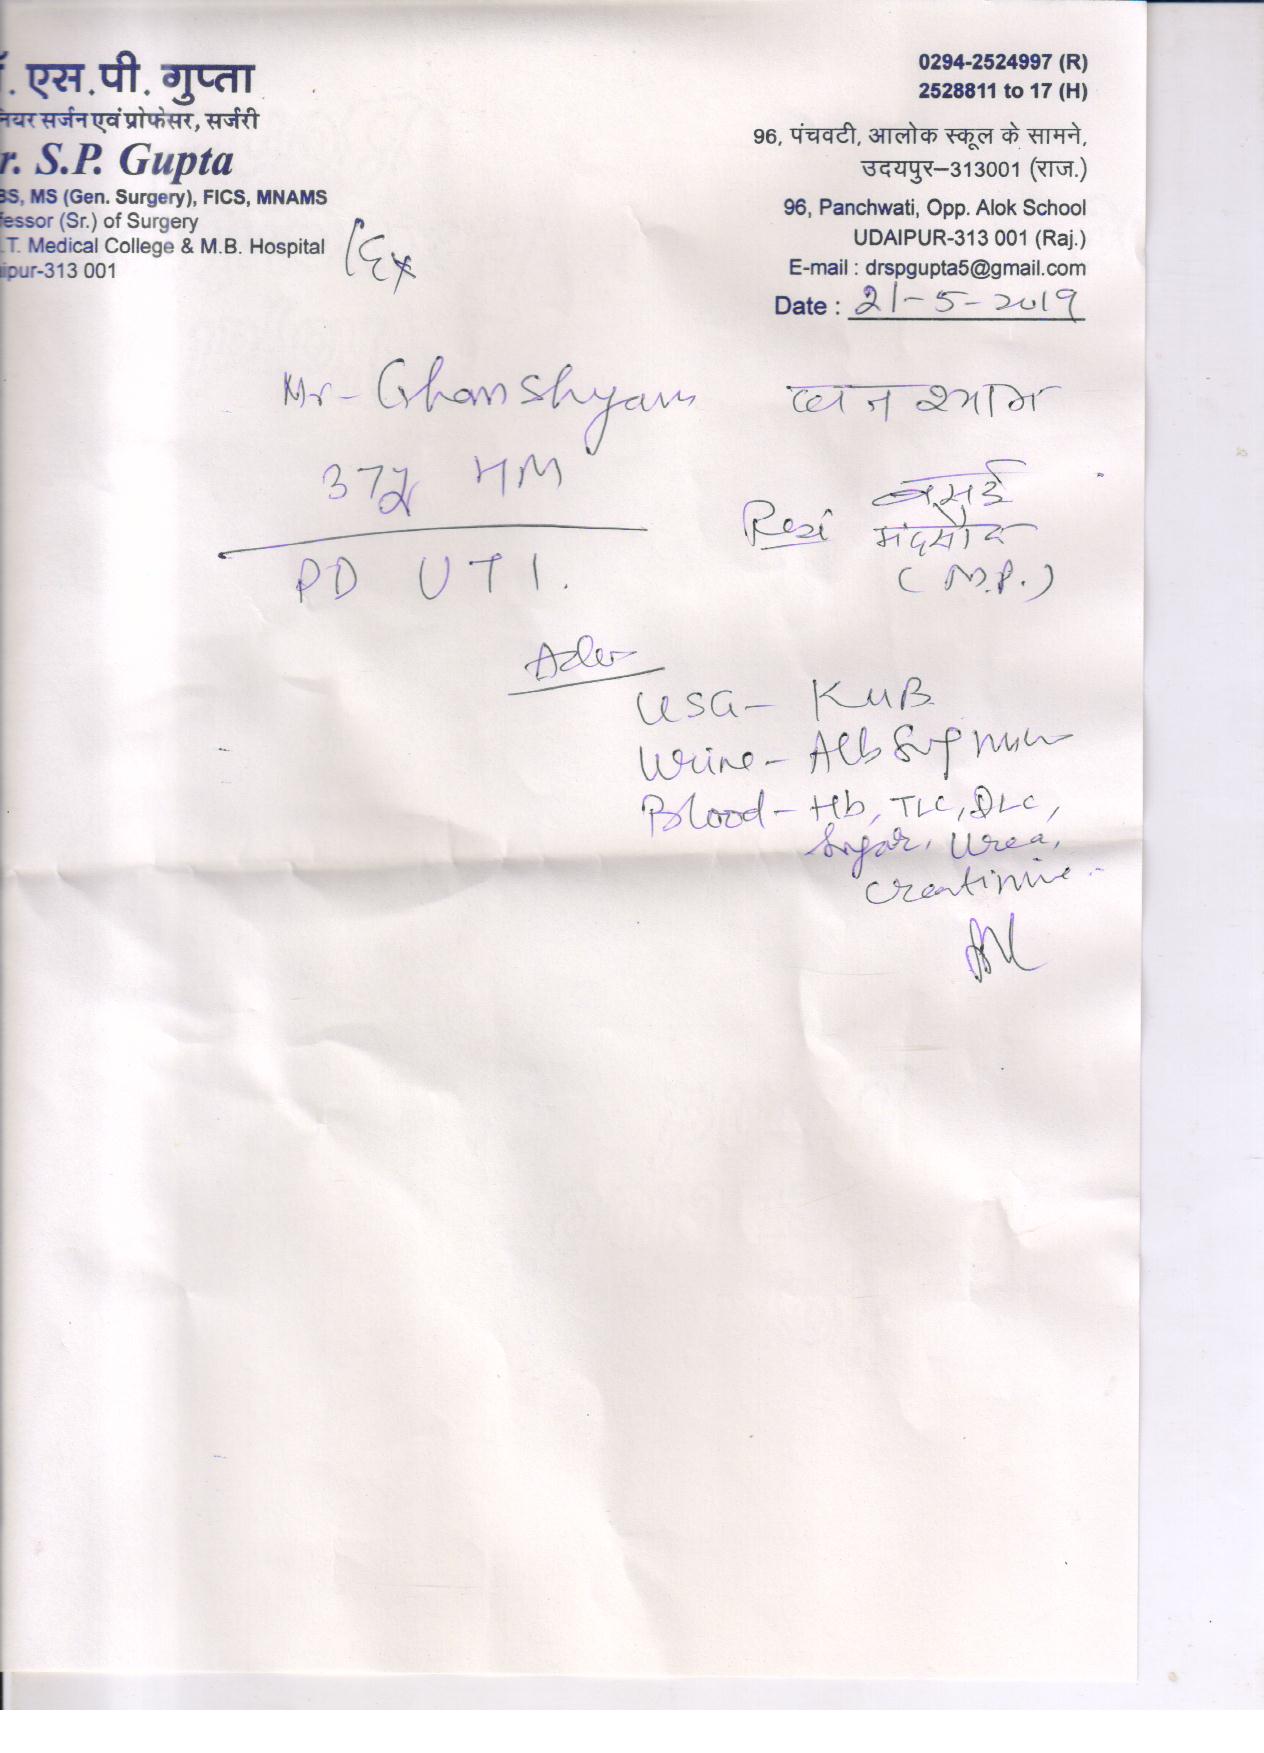 . एस.पी. गुप्ता
नियर सर्जन एवं प्रोफेसर, सर्जरी
r. S.P. Gupta
BS, MS (Gen. Surgery), FICS, MNAMS
fessor (Sr.) of Surgery
.T. Medical College & M.B. Hospital
ipur-313 001
0294-2524997 (R)
2528811 to 17 (H)
96, पंचवटी, आलोक स्कूल के सामने,
उदयपुर–313001 (राज.)
96, Panchwati, Opp. Alok School
UDAIPUR-313 001 (Raj.)
E-mail : drspgupta5@gmail.com
Date : 21-5-2019
Mr- Ghanshyam घनश्याम
37
Resi बसई
मंदसौर
(M.P.)
PD UTI.
USG- KUB
Urine- Alb Sug
Blood- Hb, TLC, DLC,
Sugar, Urea,
Creatinine